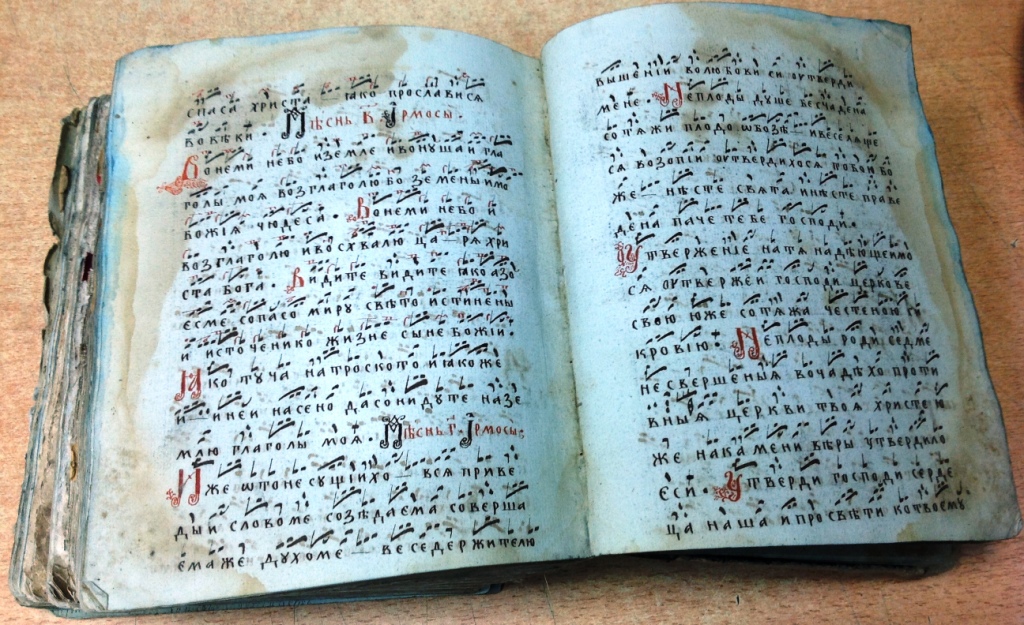 спаса христа — ꙗко прославися
вовѣки · Пѣснь в҃ Ірмосы ·
Вонеми небо иземле ивонушаи гла
голы моя возглаголю бо земены имо
божія чюдеса · Вонеми небо и
возглаголю ивосхвалю ца — ря хри
ста бога · Видите видите ꙗко азо
есмь сопасо миру свѣто истинены
и источенико жизне сыне божіи ·
Ꙗко туча натроското иꙗкоже
и — инеи насено дасонидуте назе
млю глаголы моя · Пѣснь г҃ Ірмосы ·
Иже ѿонесущіихо — вся приве
дыи словоме созѣдаема соверша
емаже духоме — веседержителю
вышеніи волюбови си оутверди
мене · Неплоды душе бесчадена
сотяжи плодо ѡвозѣ — ивеселяще
ся возопіи оутвердихося тобои бо
же — нѣсте свята инѣсте праве
дена паче тебе господи ·
Утвержение натя надѣющеимо
ся оутвержеи господи церкове
свою юже сотяжа честеною ти
кровію · Неплоды роди седме
несвершеныя вочадѣхо проти
вныя церкви твоя христе ю
же накамени вѣры утвердило
еси · Утверди господи серде
ца наша ипросвѣти котвоему